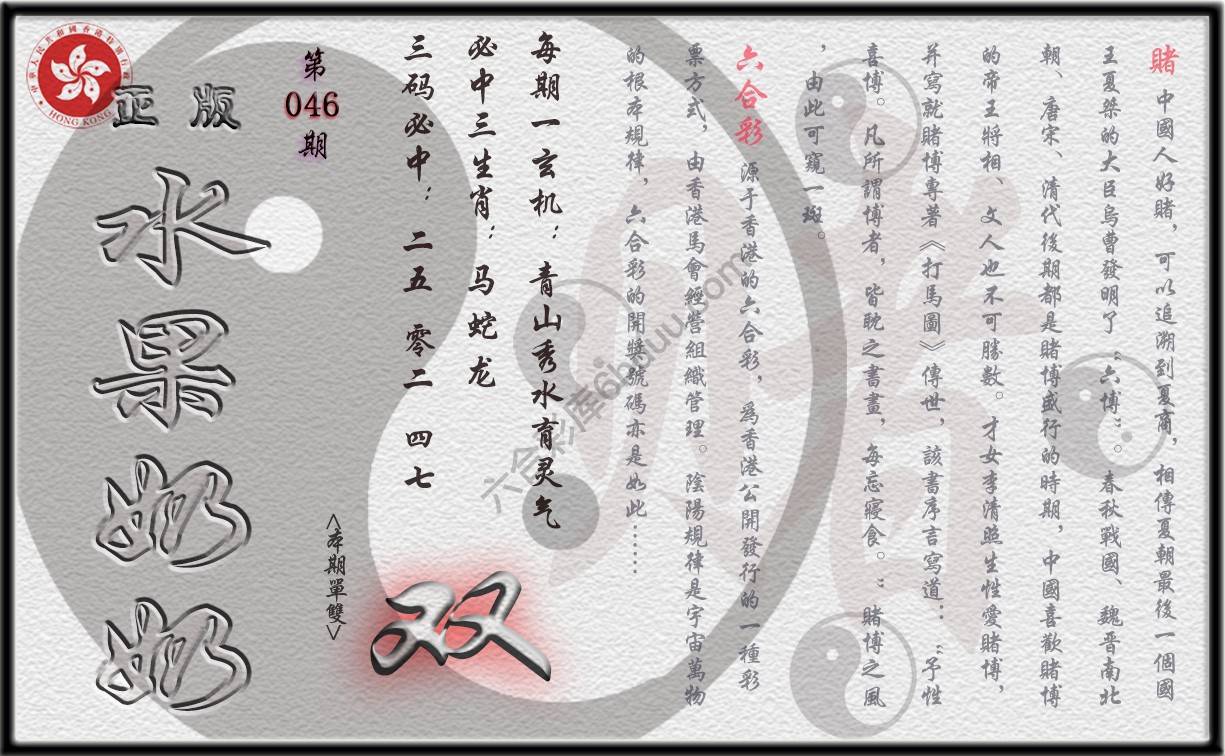 賭 中國人好賭，可以追溯到夏商，相傳夏朝最後一個國
王夏桀的大臣烏曹發明了“六博”。春秋戰國、魏晉南北
朝、唐宋、清代後期都是賭博盛行的時期，中國喜歡賭博
的帝王將相、文人也不可勝數。才女李清照生性愛賭博，
并寫就賭博專著《打馬圖》傳世，該書序言寫道：“予性
喜博。凡所謂博者，皆耽之書畫，每忘寢食。”賭博之風
，由此可窺一斑。
六合彩 源于香港的六合彩，為香港公開發行的一種彩
票方式，由香港馬會經營組織管理。陰陽規律是宇宙萬物
的根本規律，六合彩的開獎號碼亦是如此……
每期一玄机：青山秀水育灵气
必中三生肖：马蛇龙
三码必中：二五 零二 四七
双
<本期單雙>
第
046
期
正版
水果奶奶
中華人民共和國香港特別行政區
HONG KONG
六合彩库6hduu.com